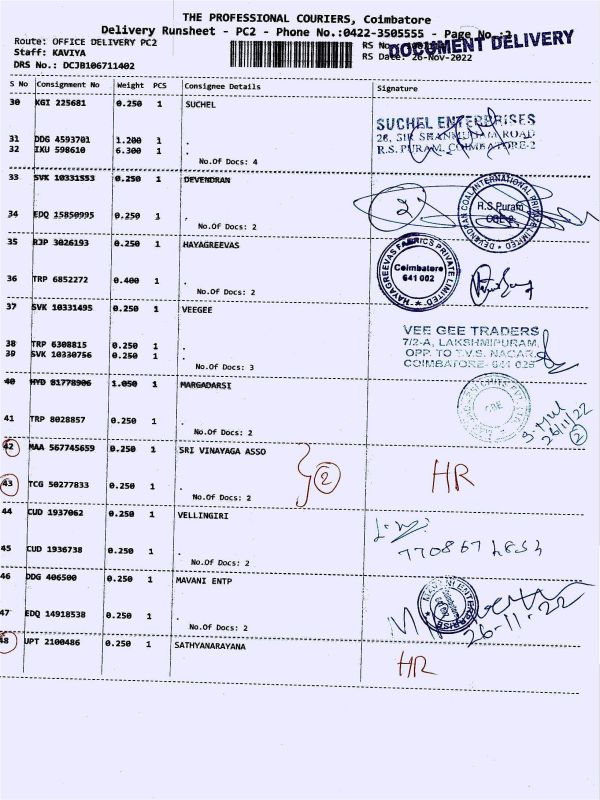 THE PROFESSIONAL COURIERS, Coimbatore
Delivery Runsheet - PC2 - Phone No.:0422-3505555 - Page No.:2
Route: OFFICE DELIVERY PC2
RS No
DOCUMENT DELIVERY
Staff: KAVIYA
RS Date: 26-Nov-2022
DRS No.: DCJB106711402
S No Consignment No Weight PCS Consignee Details Signature
30 KGI 225681 0.250 1 SUCHEL
SUCHEL ENTERPRISES
26, SIR SHANMUGAM ROAD
R.S. PURAM, COIMBATORE-2
31 DDG 4593701 1.200 1 .
32 IXU 598610 6.300 1 .
No.Of Docs: 4
33 SVK 10331553 0.250 1 DEVENDRAN
DEVANDRAN COAL INTERNATIONAL PRIVATE LIMITED
R.S Puram
CBE-2
2
34 EDQ 15850995 0.250 1 .
No.Of Docs: 2
35 RJP 3026193 0.250 1 HAYAGREEVAS
HAYAGREEVAS FABRICS PRIVATE LIMITED
Coimbatore
641 002
36 TRP 6852272 0.400 1 .
No.Of Docs: 2
37 SVK 10331495 0.250 1 VEEGEE
VEE GEE TRADERS
7/2-A, LAKSHMIPURAM,
OPP. TO T.V.S. NAGAR,
COIMBATORE- 641 025
38 TRP 6308815 0.250 1 .
39 SVK 10330756 0.250 1 .
No.Of Docs: 3
40 HYD 81778906 1.050 1 MARGADARSI
CBE
26/11/22
2
41 TRP 8028857 0.250 1 .
No.Of Docs: 2
42 MAA 567745659 0.250 1 SRI VINAYAGA ASSO
2 HR
43 TCG 50277833 0.250 1 .
No.Of Docs: 2
44 CUD 1937062 0.250 1 VELLINGIRI
45 CUD 1936738 0.250 1 .
No.Of Docs: 2
46 DDG 406500 0.250 1 MAVANI ENTP
MAVANI ENTERPRISE
26-11-22
47 EDQ 14918538 0.250 1 .
No.Of Docs: 2
48 UPT 2100486 0.250 1 SATHYANARAYANA
HR